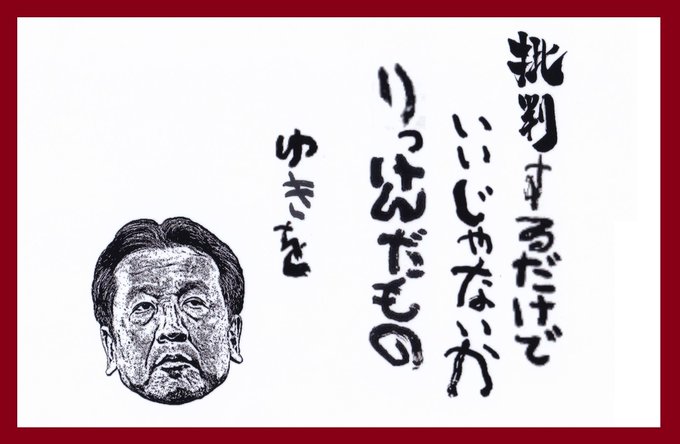 批判するだけで
いいじゃないか
りっけんだもの
ゆきを